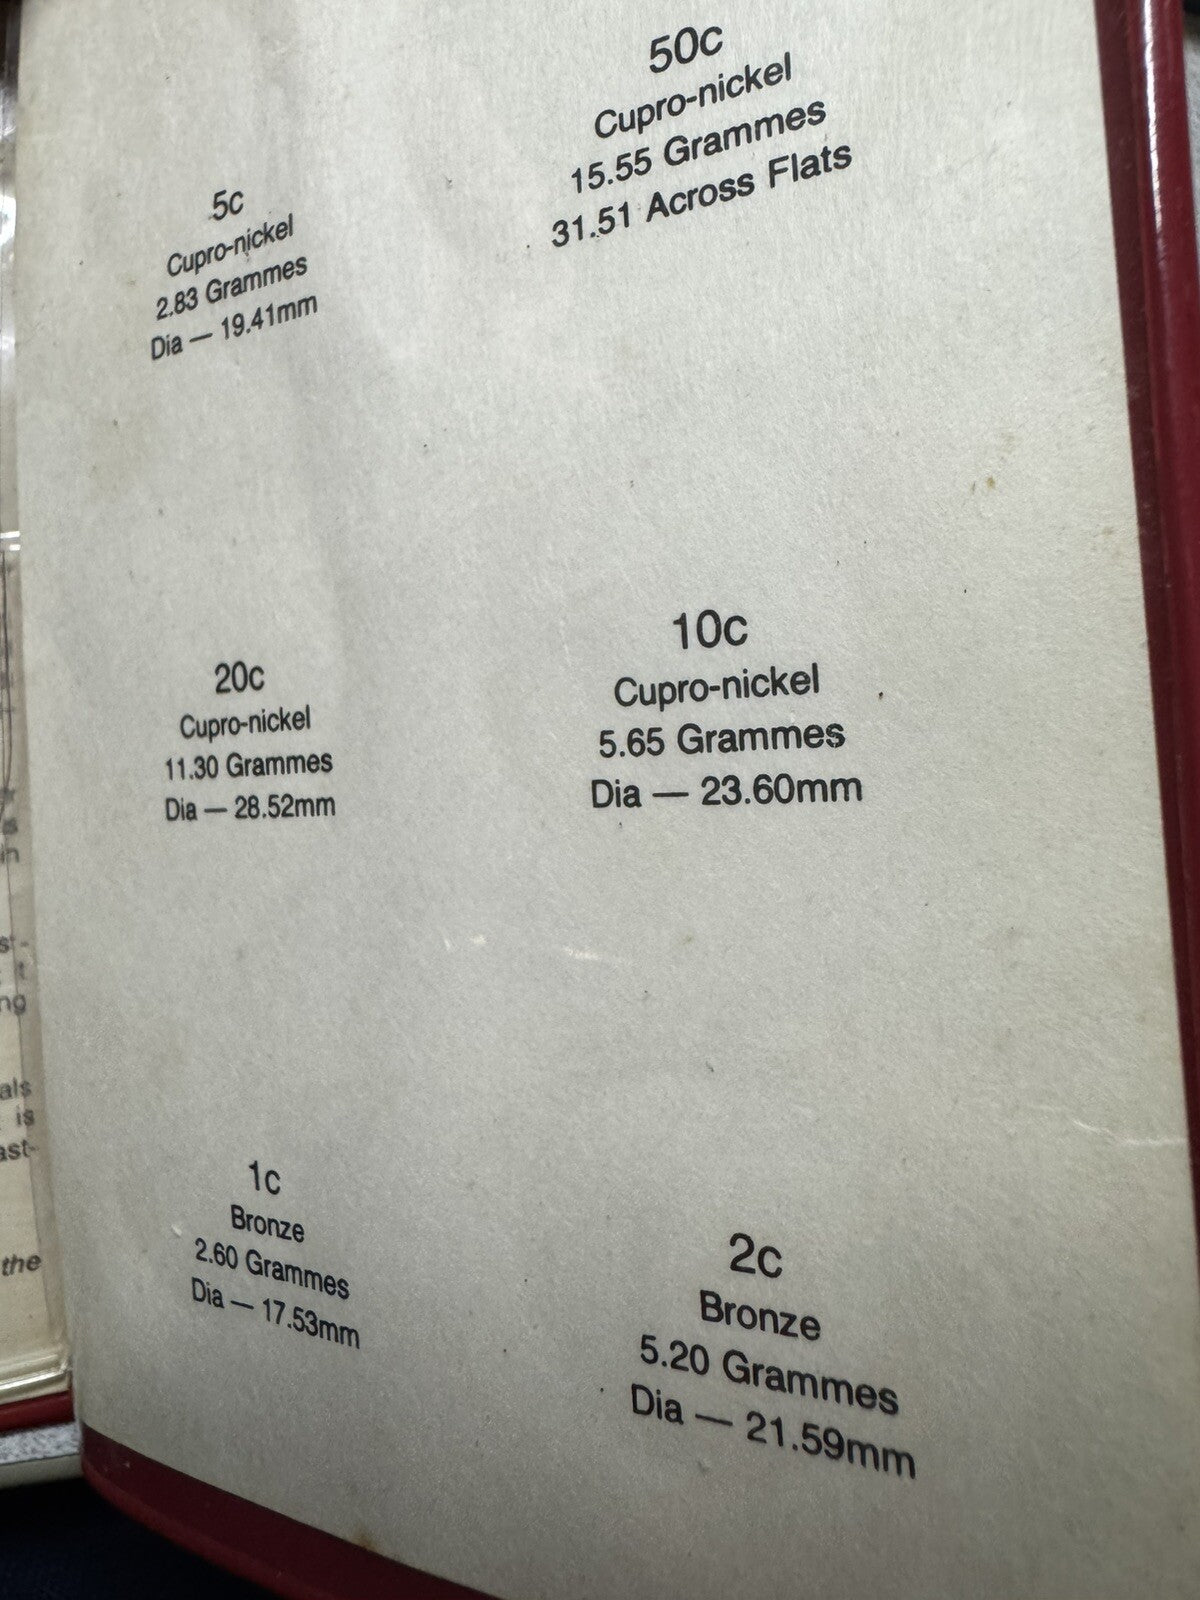 50c
Cupro-nickel
15.55 Grammes
31.51 Across Flats
5c
Cupro-nickel
2.83 Grammes
Dia — 19.41mm
20c
Cupro-nickel
11.30 Grammes
Dia — 28.52mm
10c
Cupro-nickel
5.65 Grammes
Dia — 23.60mm
1c
Bronze
2.60 Grammes
Dia — 17.53mm
2c
Bronze
5.20 Grammes
Dia — 21.59mm
is
the